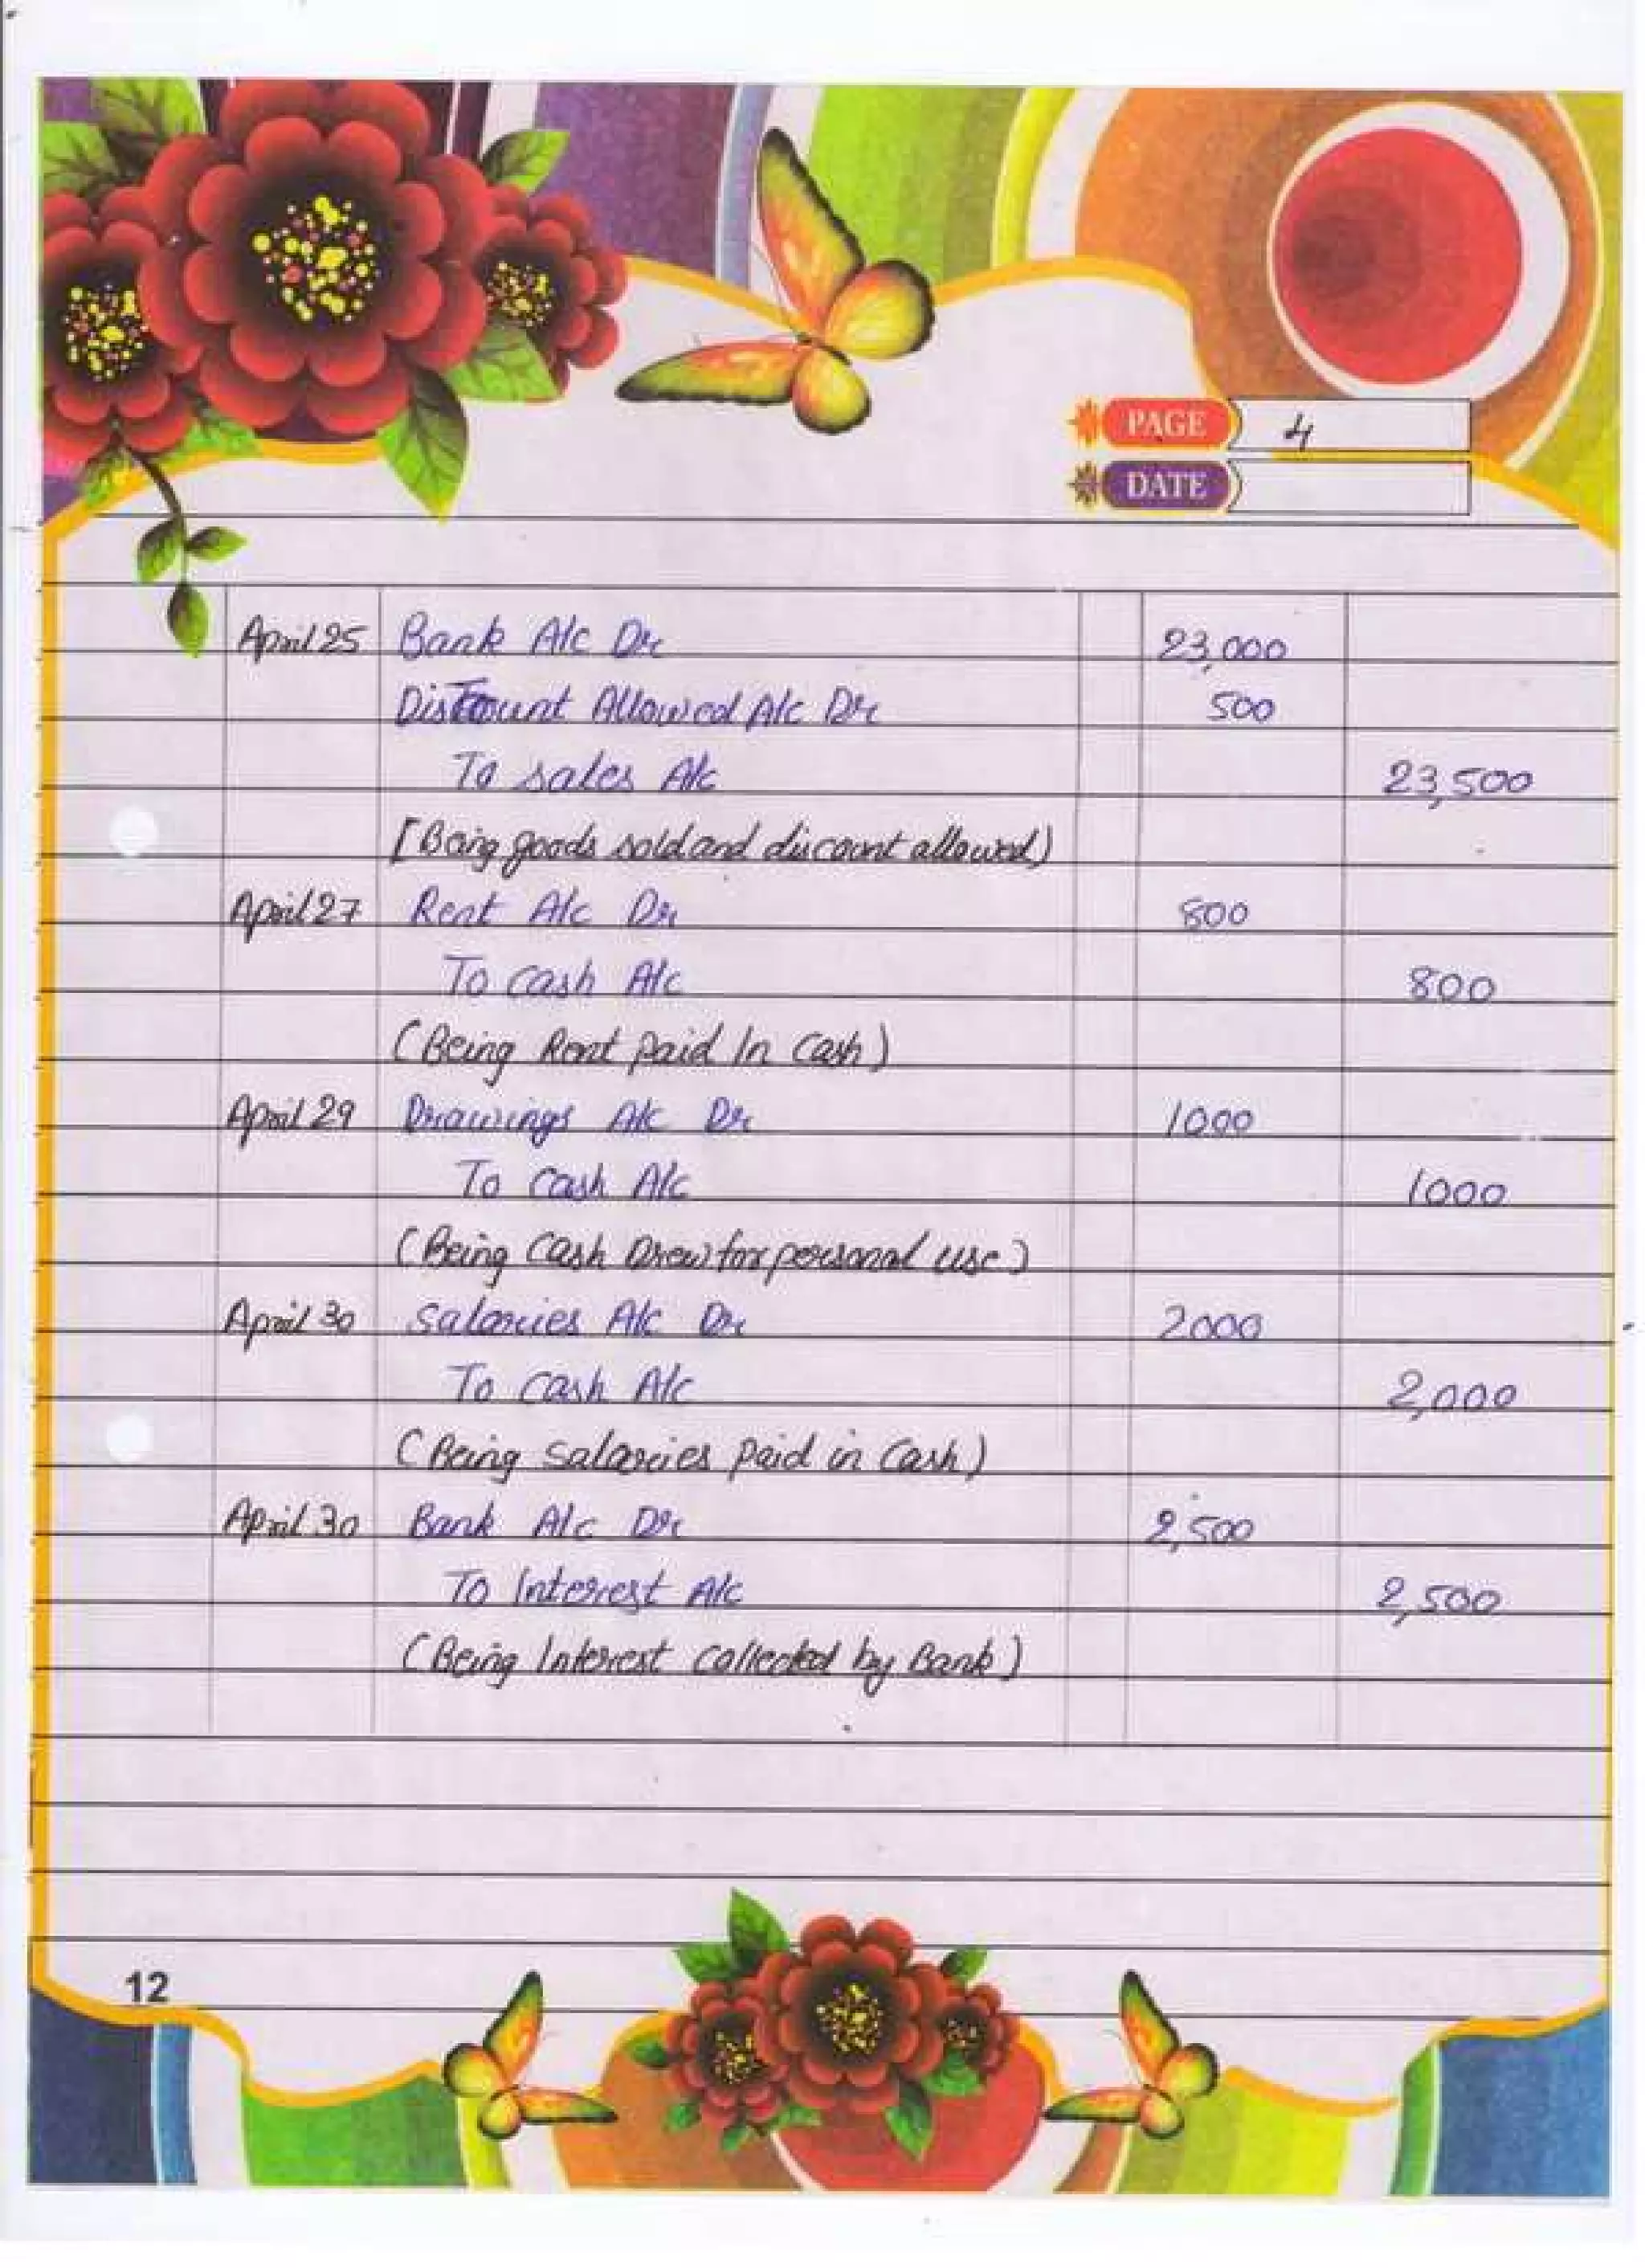 PAGE 4
DATE
April 25 Bank A/c Dr 23,000
Discount Allowed A/c Dr 500
To sales A/c 23,500
[Being goods sold and discount allowed)
April 27 Rent A/c Dr 800
To cash A/c 800
(Being Rent paid In cash)
April 29 Drawings A/c Dr 1000
To cash A/c 1000
(Being Cash Drew for personal use)
April 30 Salaries A/c Dr 2000
To cash A/c 2,000
(Being salaries paid in Cash)
April 30 Bank A/c Dr 2,500
To Interest A/c 2,500
(Being Interest collected by Bank)
12